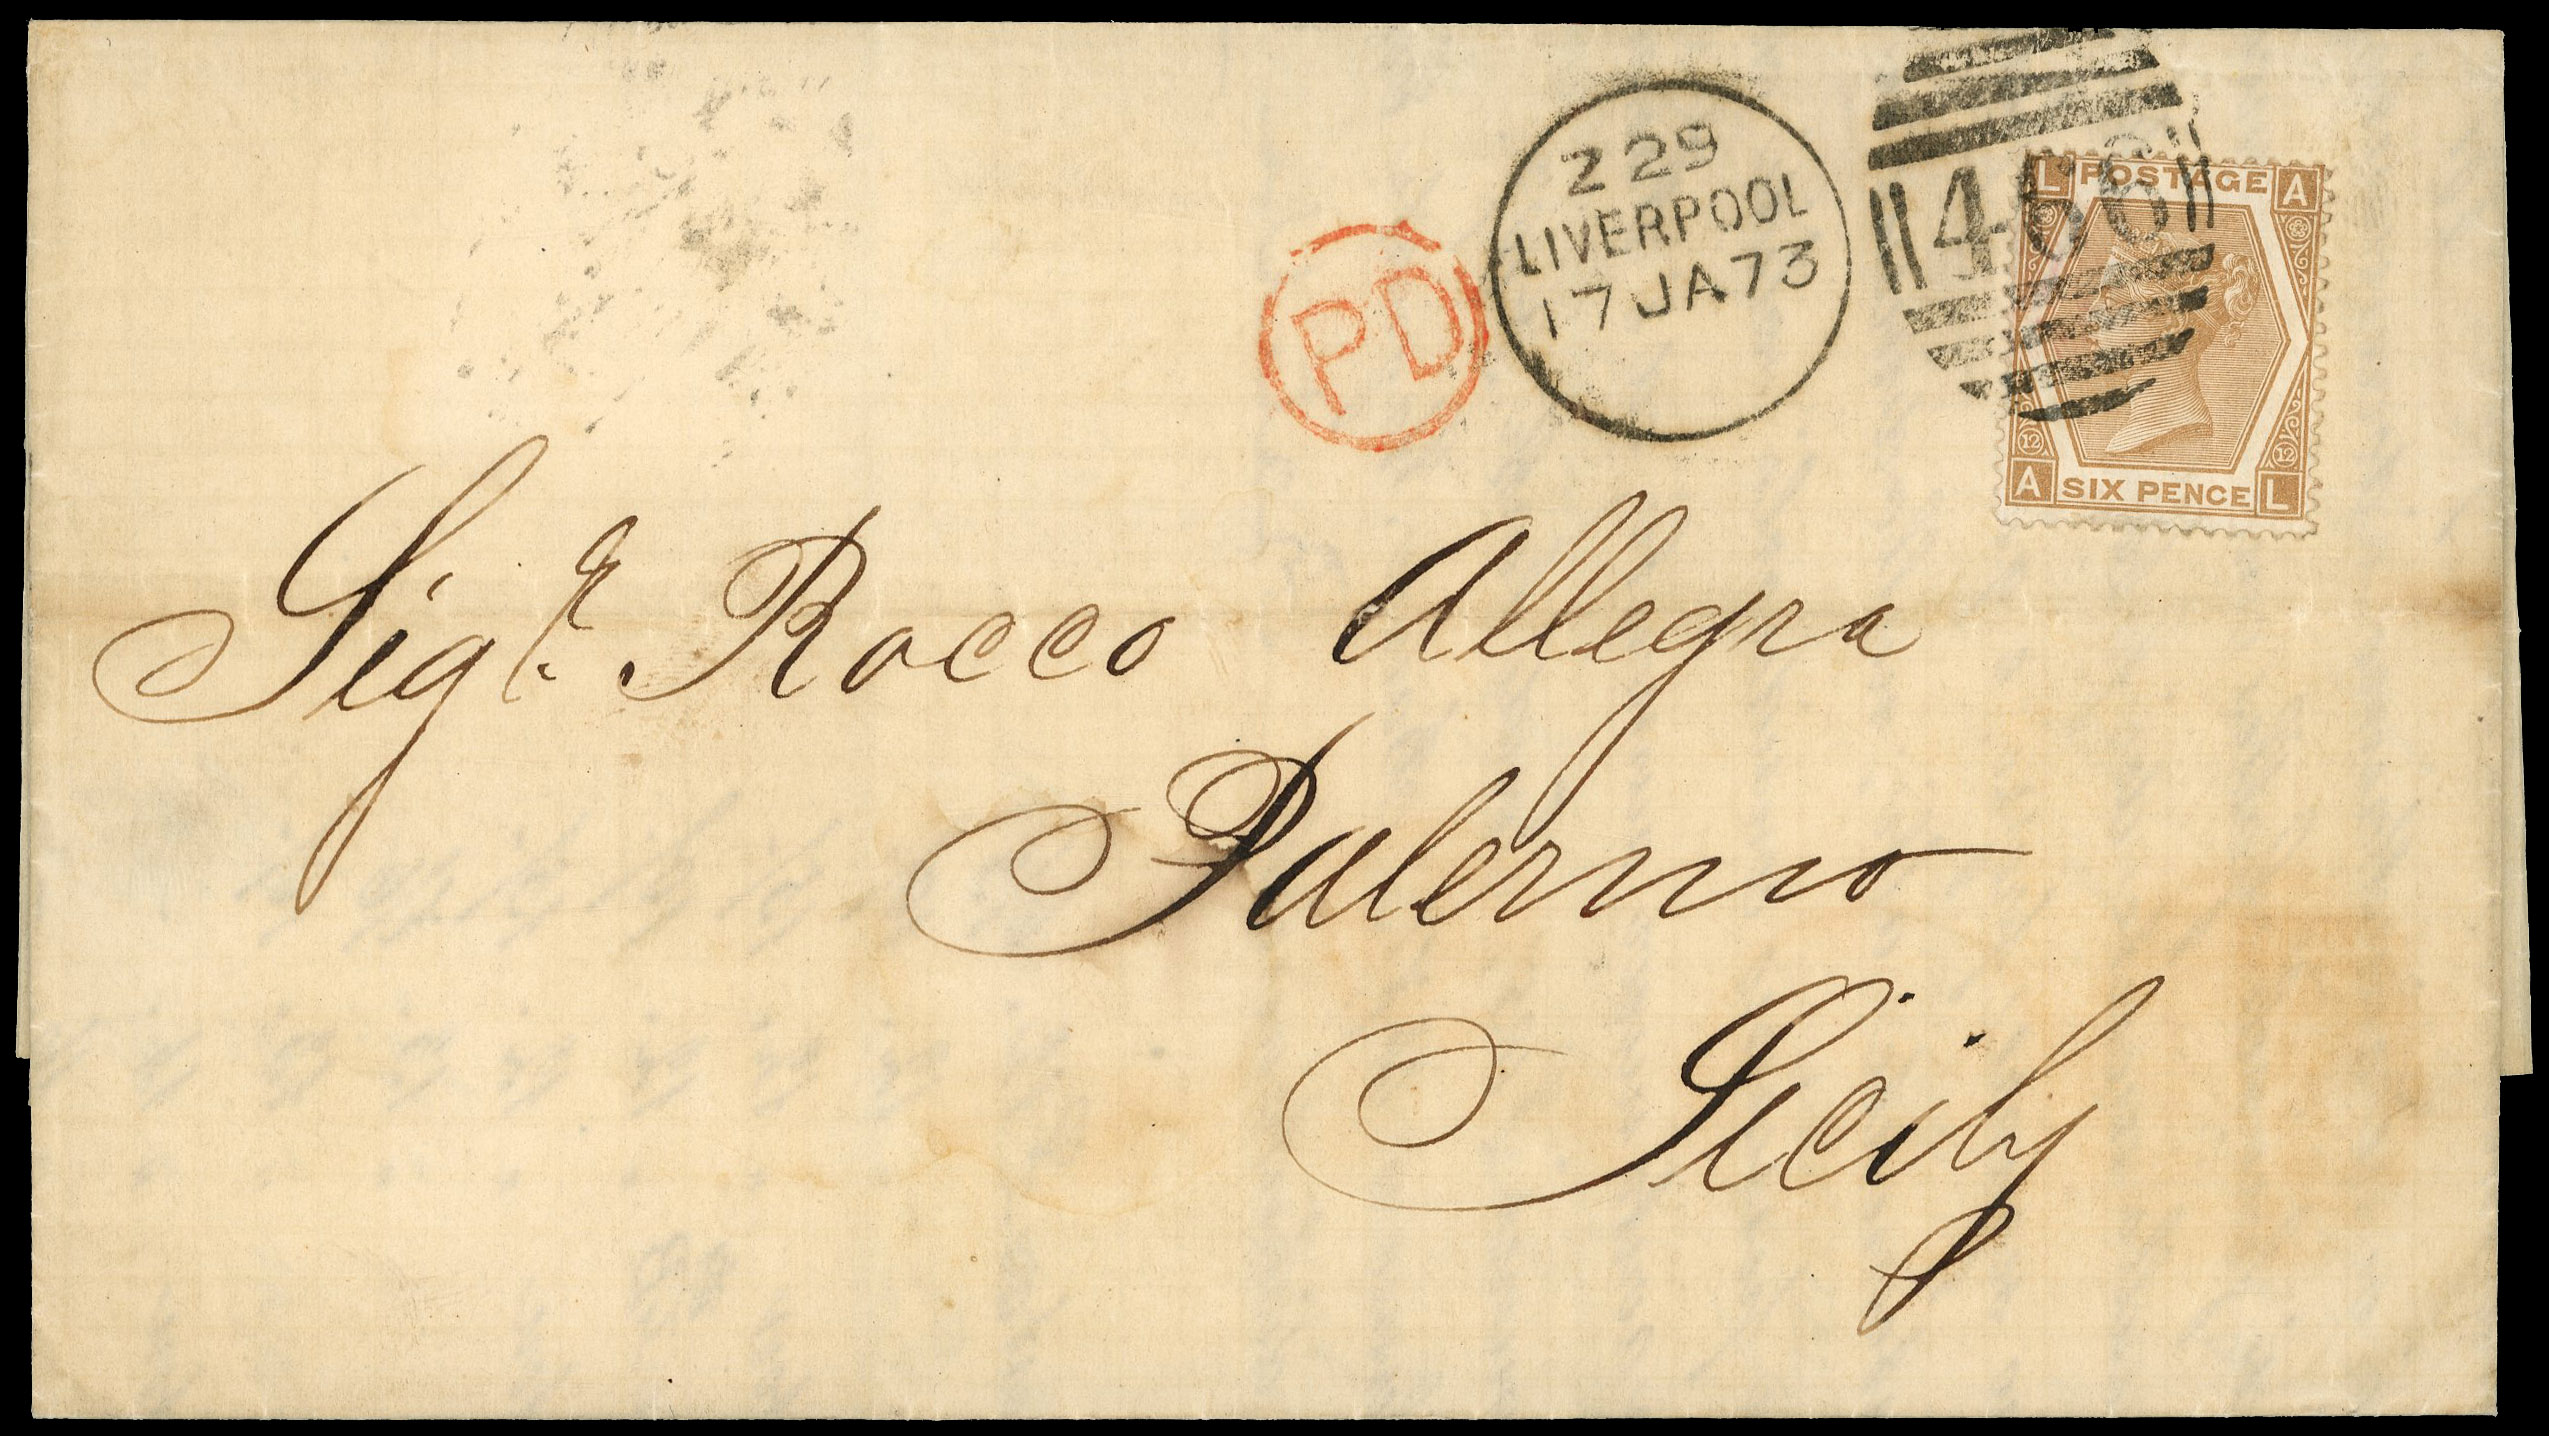 Z 29
LIVERPOOL
17 JA 73
PD
466
L POSTAGE A
12 12
A SIX PENCE L
Sigr. Rocco Allegra
Palermo
Sicily